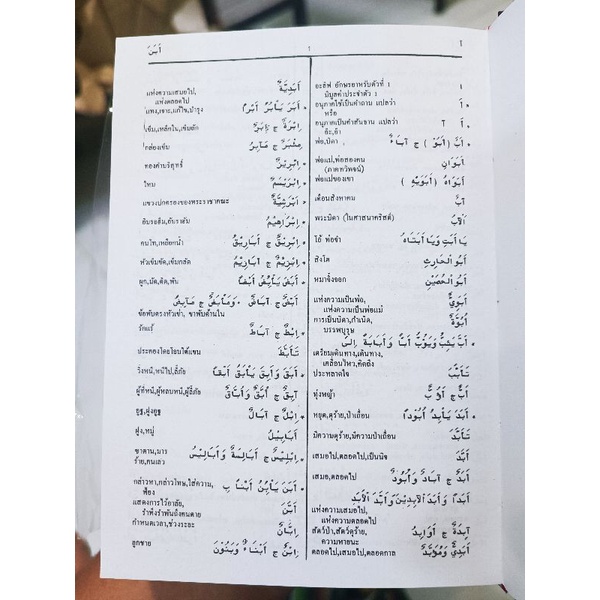 أَبَنَ
1
آ
อะลิฟ อักษรอาหรับตัวที่ 1
มีมูลค่าประจำตัว 1
ا
อนุภาคใช้เป็นคำถาม แปลว่า
หรือ
أَ
อนุภาคเป็นคำสันธาน แปลว่า
อ๊ะ,อ้า
أَ آ
พ่อ,บิดา
أَبٌ (أَبَوٌ) ج آبَاءٌ
พ่อแม่,พ่อสองคน
(ภาคทวิพจน์)
أَبَوَانِ
พ่อแม่ของเขา
أَبَوَاهُ (أَبَوَيْهِ)
เดือนสิงหาคม
آبُ
พระบิดา (ในศาสนาคริสต์)
اَلْآبُ
โอ้ พ่อข้า
يَا أَبَتِ وَيَا أَبَتَاهُ
สิงโต
أَبُو الْحَارِثِ
หมาจิ้งจอก
أَبُو الْحُصَيْنِ
แห่งความเป็นพ่อ,
แห่งความเป็นพ่อแม่
أَبَوِيٌّ
การเป็นบิดา,กำเนิด,
บรรพบุรุษ
أُبُوَّةٌ
أَبَّ يَئِبُّ وَيَؤُبُّ أَبًّا وَأَبَابَةً إِلَى
เตรียมเดินทาง,เดินทาง,
เคลื่อนไหว,คิดถึง
ประหลาดใจ
تَأَبَّبَ
ทุ่งหญ้า
أَبٌّ ج أَوُبٌّ
หยุด,ดุร้าย,ป่าเถื่อน
أَبَدَ يَأْبِدُ أُبُودًا
มีความดุร้าย,มีความป่าเถื่อน
تَأَبَّدَ
เสมอไป,ตลอดไป,เป็นนิจ
أَبَّدَ
เสมอ,ตลอดไป
أَبَدٌ ج آبَادٌ وَأُبُودٌ
أَبَدًا وَأَبَدَ الْآبِدِينَ وَأَبَدَ الْأَبَدِ
แห่งความเสมอไป,
แห่งความตลอดไป
สัตว์ป่า,สัตว์ดุร้าย,
ความหายนะ
آبِدَةٌ ج أَوَابِدُ
ตลอดไป,เสมอไป,ตลอดกาล
أَبَدِيٌّ وَمُؤَبَّدٌ
แห่งความเสมอไป,
แห่งตลอดไป
أَبَدِيَّةٌ
แทง,เจาะ,แก้ไข,บำรุง
أَبَرَ يَأْبُرُ أَبْرًا
เข็ม,เหล็กใน,เข็มถัก
إِبْرَةٌ ج إِبَرٌ
กล่องเข็ม
مِئْبَرٌ ج مَآبِرُ
ทองคำบริสุทธิ์
إِبْرِيزٌ
ไหม
إِبْرِيسَمٌ
แขวงปกครองของพระราชาคณะ
أَبْرَشِيَّةٌ
อับรอฮีม,อับราฮัม
إِبْرَاهِيمُ
คนโท,เหยือกน้ำ
إِبْرِيقٌ ج أَبَارِيقُ
หัวเข็มขัด,เข็มกลัด
إِبْزِيمٌ ج أَبَازِيمُ
ผูก,มัด,คัด,พัน
ข้อพับตรงหัวเข่า, ขาพับด้านใน
รักแร้
إِبْطٌ ج آبَاطٌ
ประคองโดยโอบใต้แขน
تَأَبَّطَ
วิ่งหนี,หนีไป,ลี้ภัย
أَبَقَ وَأَبِقَ يَأْبَقُ أَبْقًا
ผู้ที่หนี,ผู้หลบหนี,ผู้ลี้ภัย
آبِقٌ ج أُبَّقٌ وَأُبَّاقٌ
อูฐ,ฝูงอูฐ
إِبِلٌ ج آبَالٌ
ฝูง,หมู่
أَبَابِيلُ
ซาตาน,มาร
ร้าย,คนเลว
إِبْلِيسُ ج أَبَالِسَةٌ وَأَبَالِيسُ
กล่าวหา,กล่าวโทษ,ใส่ความ,
ฟ้อง
أَبَنَ يَأْبِنُ أَبْنًا بِ
แสดงการไว้อาลัย,
รำพึงรำพันถึงคนตาย
أَبَّنَ
กำหนดเวลา,ช่วงระยะ
إِبَّانٌ
ลูกชาย
إِبْنٌ ج أَبْنَاءٌ وَبَنُونَ